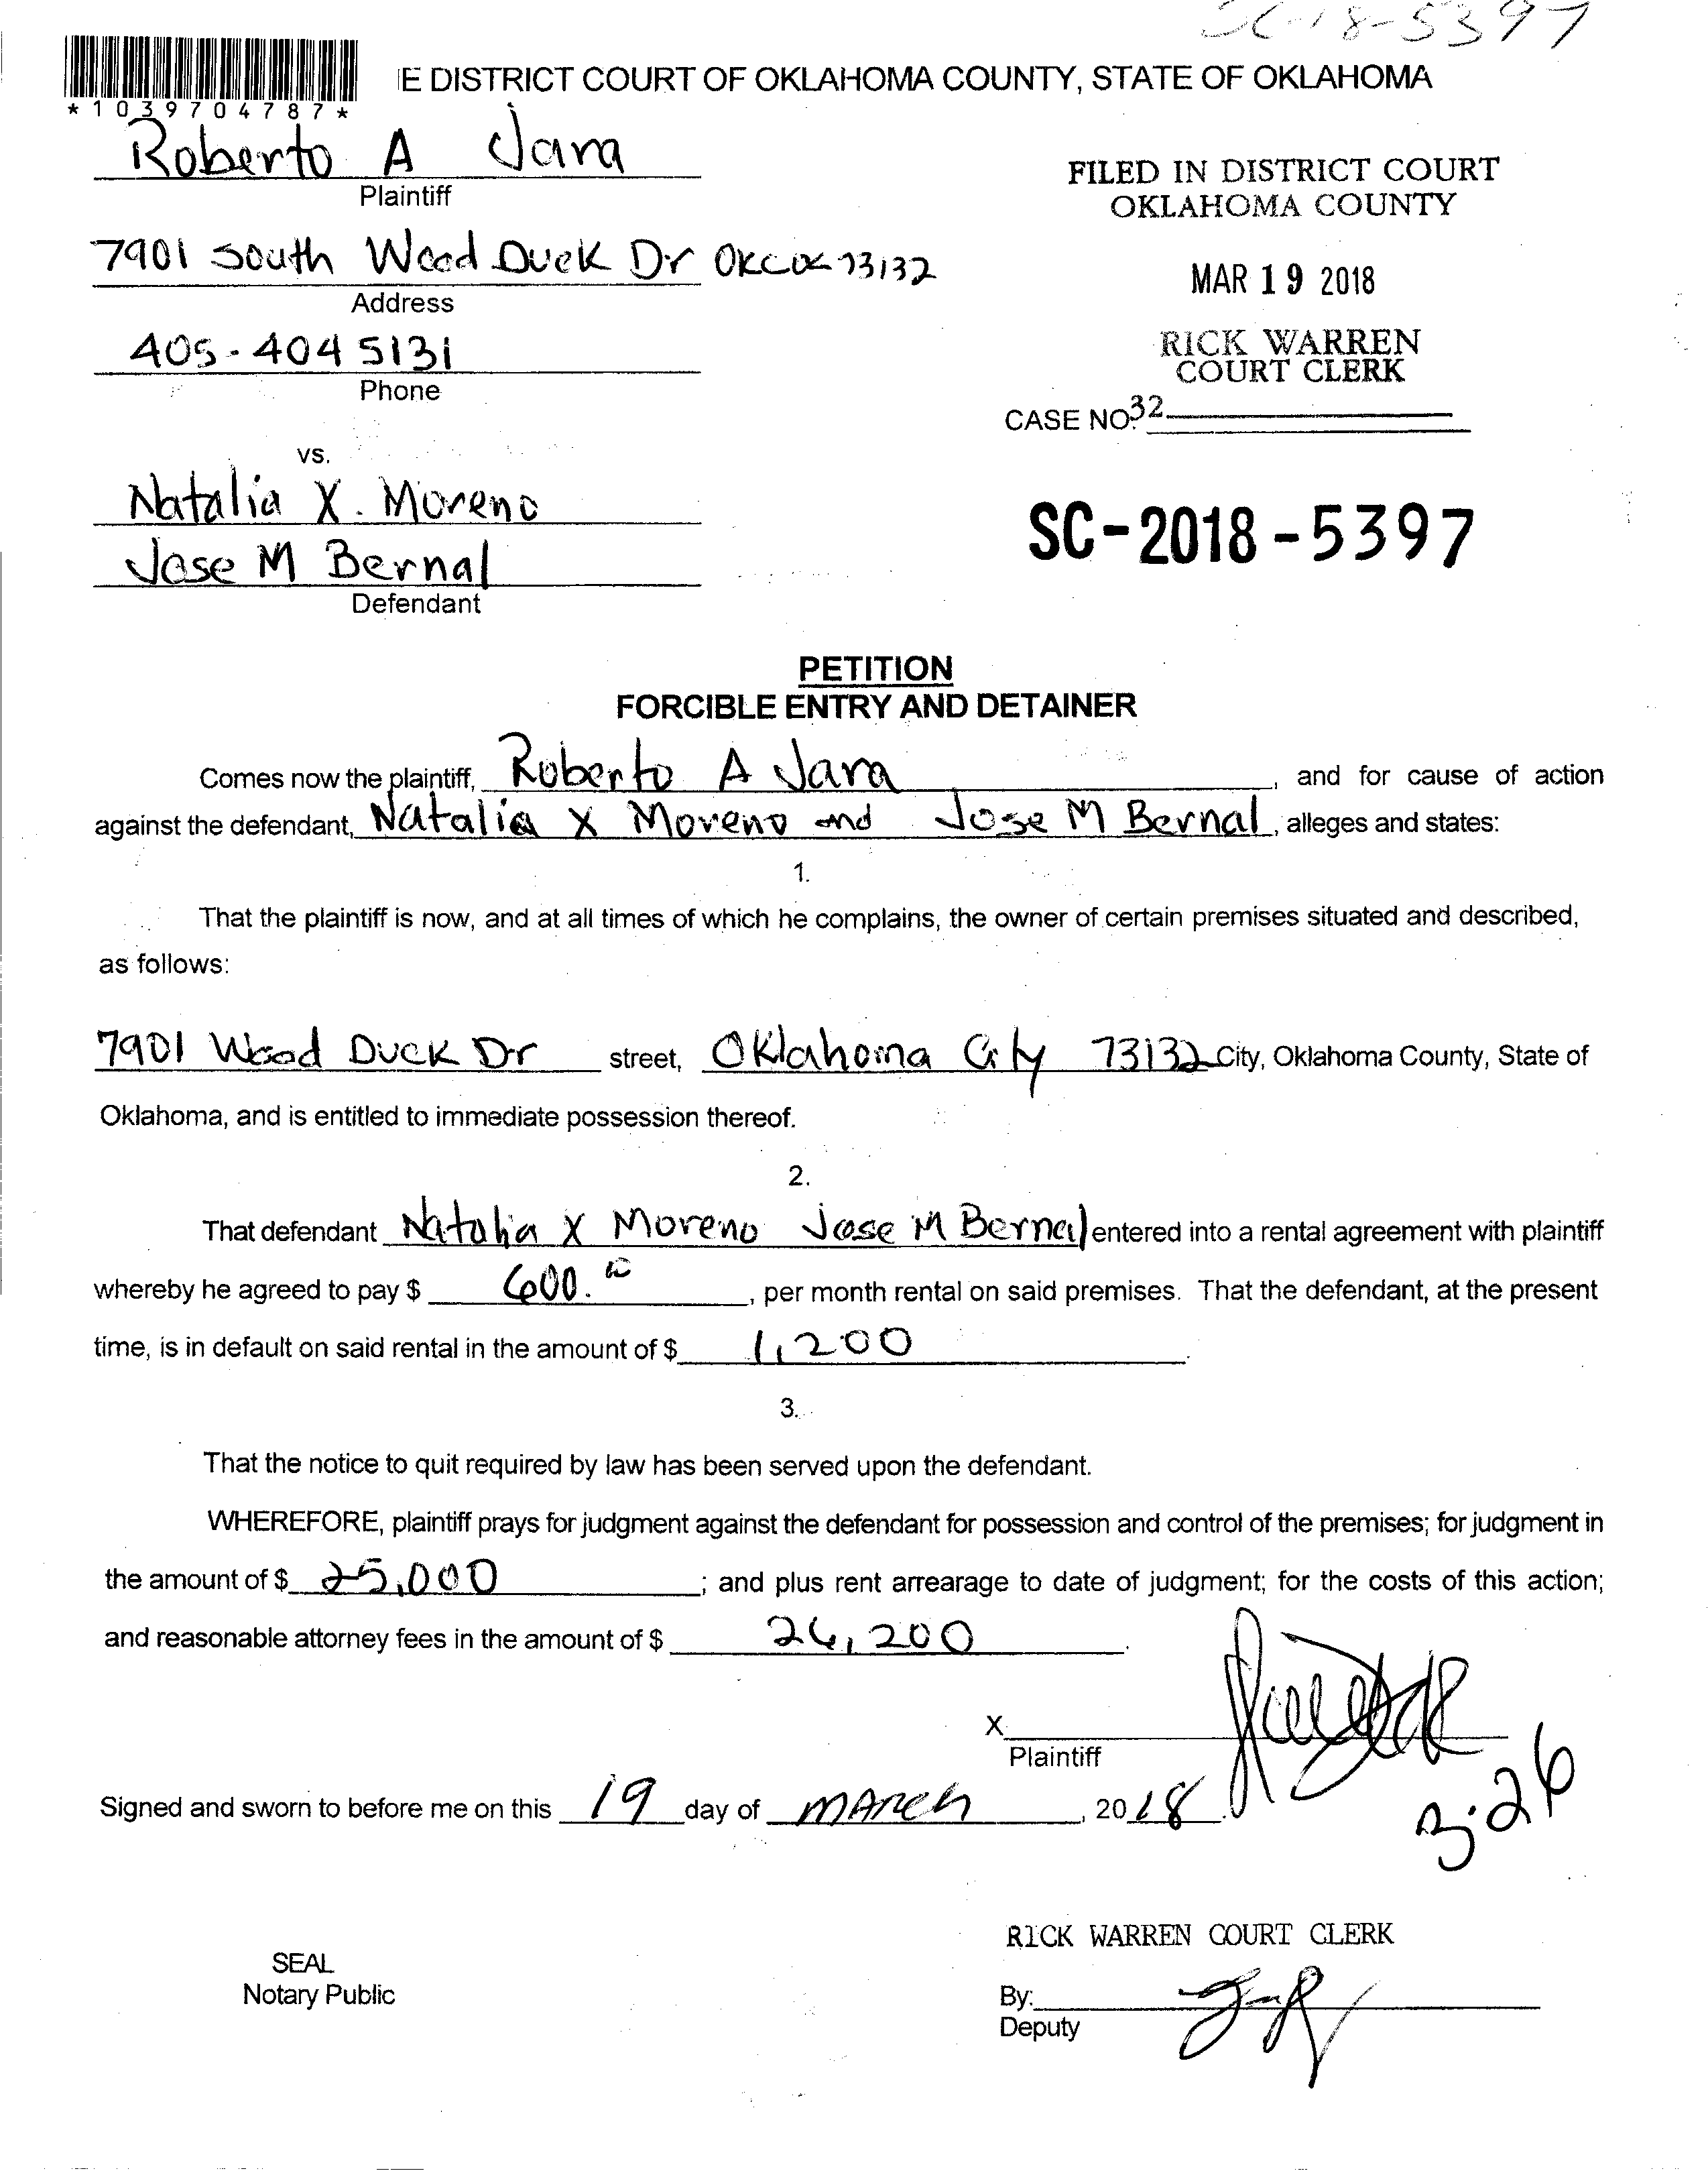 SC-18-5397
E DISTRICT COURT OF OKLAHOMA COUNTY, STATE OF OKLAHOMA
*1039704787*
Roberto A Jara
Plaintiff
FILED IN DISTRICT COURT
OKLAHOMA COUNTY
7901 South Wood Duck Dr OKC OK 73132
Address
MAR 19 2018
405-404 5131
Phone
RICK WARREN
COURT CLERK
CASE NO. 32
vs.
Natalia X. Moreno
Jose M Bernal
Defendant
SC-2018-5397
PETITION
FORCIBLE ENTRY AND DETAINER
Comes now the plaintiff, Roberto A Jara, and for cause of action
against the defendant, Natalia X Moreno and Jose M Bernal, alleges and states:
1.
That the plaintiff is now, and at all times of which he complains, the owner of certain premises situated and described,
as follows:
7901 Wood Duck Dr street, Oklahoma City 73132 City, Oklahoma County, State of
Oklahoma, and is entitled to immediate possession thereof.
2.
That defendant Natalia X Moreno Jose M Bernal entered into a rental agreement with plaintiff
whereby he agreed to pay $ 600.00, per month rental on said premises. That the defendant, at the present
time, is in default on said rental in the amount of $ 1,200.
3.
That the notice to quit required by law has been served upon the defendant.
WHEREFORE, plaintiff prays for judgment against the defendant for possession and control of the premises; for judgment in
the amount of $ 25,000; and plus rent arrearage to date of judgment; for the costs of this action;
and reasonable attorney fees in the amount of $ 26,200.
X
Plaintiff
Signed and sworn to before me on this 19 day of MARCH, 2018.
3:26
RICK WARREN COURT CLERK
SEAL
Notary Public
By:
Deputy